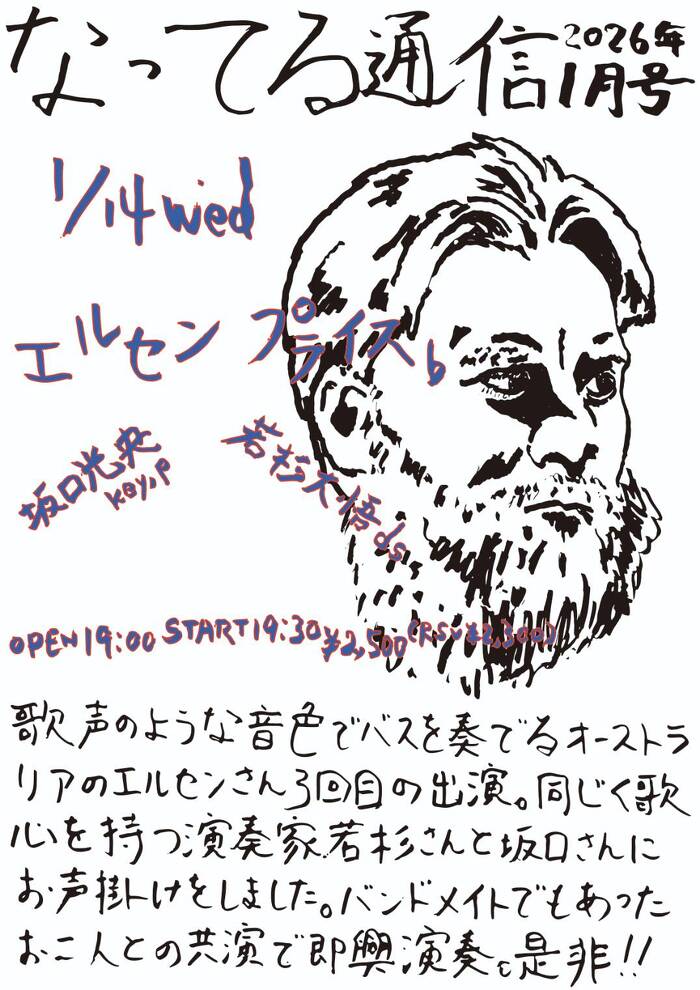 なってる通信 2026年
1月号
1/14 wed
エルセン プライス b
坂口光央
key,p
若杉大悟 ds
OPEN 19:00 START 19:30 ¥2,500 (RSV ¥2,300)
歌声のような音色でバスを奏でるオーストラ
リアのエルセンさん3回目の出演。同じく歌
心を持つ演奏家若杉さんと坂口さんに
お声掛けをしました。バンドメイトでもあった
お二人との共演で即興演奏。是非!!